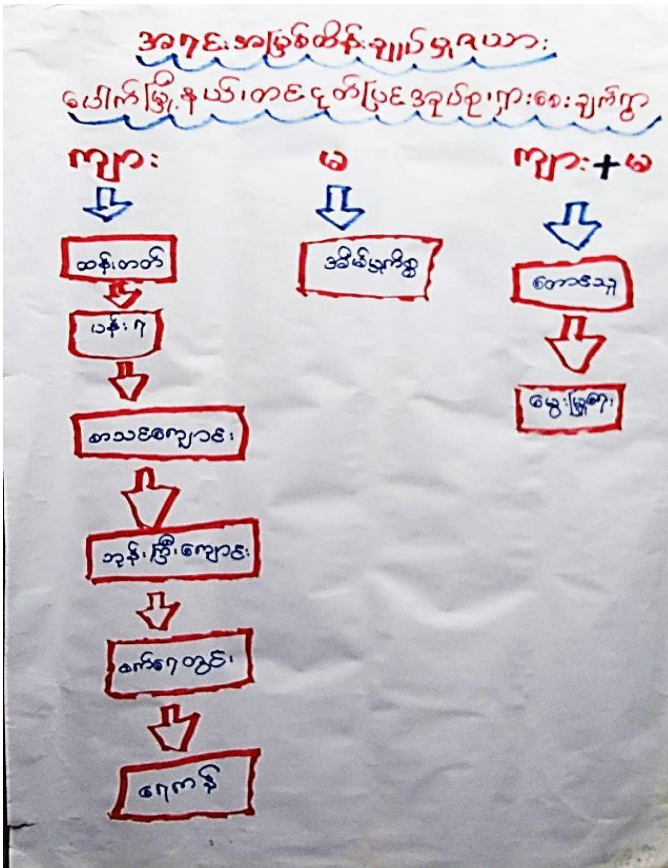 အရင်းအမြစ်ထိန်းချုပ်မှုဇယား
ပေါက်မြို့နယ်၊တင်ငုတ်မြင့်အုပ်စု၊ရှားစေးချက်ရွာ
ကျား
မ
ကျား+မ
ထန်းတတ်
ပန်းရံ
စာသင်ကျောင်း
ဘုန်းကြီးကျောင်း
စက်ရေတွင်း
ရေကန်
အိမ်မှုကိစ္စ
တောင်သူ
မွေးမြူရေး